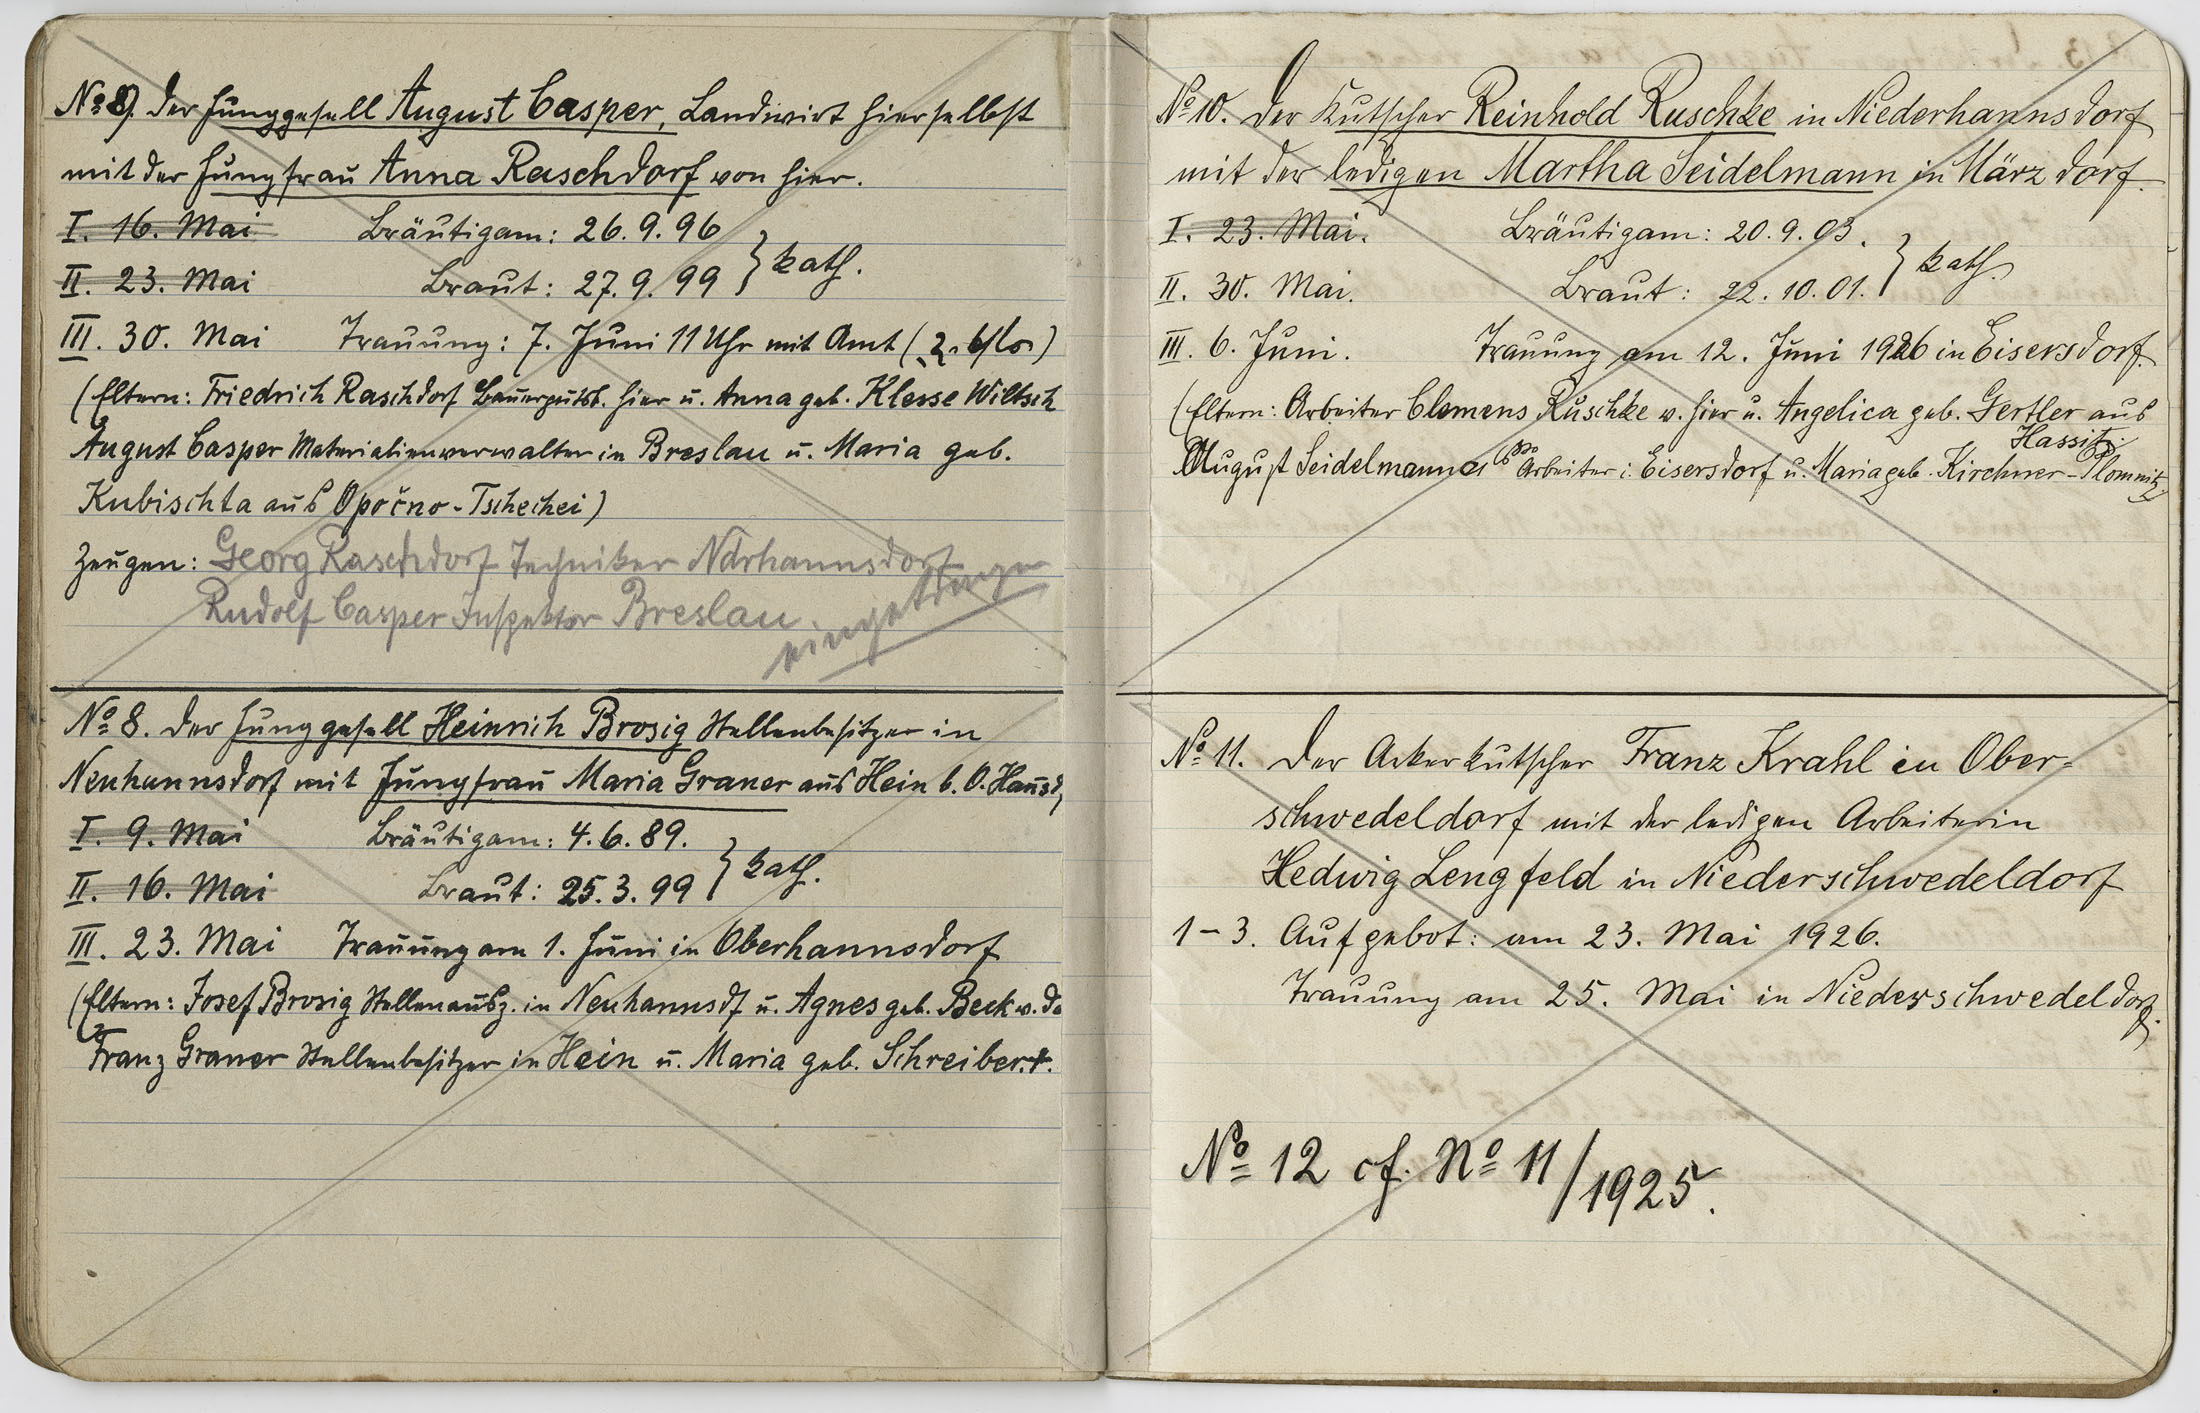 No 9. Der Junggesell August Casper, Landwirt hierselbst
mit der Jungfrau Anna Raschdorf von hier.
I. 16. Mai Bräutigam: 26.9.96
II. 23. Mai Braut: 27.9.99 } kath.
III. 30. Mai Trauung: 7. Juni 11 Uhr mit Amt (
(Eltern: Friedrich Raschdorf Bauergutsb. hier u. Anna geb. Klesse Wiltsch
August Casper Materialienverwalter in Breslau u. Maria geb.
Kubischta aus Opočno - Tschechei)
Zeugen: Georg Raschdorf Techniker Ndrhannsdorf
Rudolf Casper Inspektor Breslau.
eingetragen
No 8. Der Junggesell Heinrich Brosig Stellenbesitzer in
Neuhannsdorf mit Jungfrau Maria Graner aus Hein b. O. Hausd,
I. 9. Mai Bräutigam: 4.6.89.
II. 16. Mai Braut: 25.3.99 } kath.
III. 23. Mai Trauung am 1. Juni in Oberhannsdorf
(Eltern: Josef Brosig Stellenausz. in Neuhannsdf u. Agnes geb. Beck v. da
Franz Graner Stellenbesitzer in Hein u. Maria geb. Schreiber. †.
No 10. Der Kutscher Reinhold Ruschke in Niederhannsdorf
mit der ledigen Martha Seidelmann in Märzdorf.
I. 23. Mai. Bräutigam: 20.9.03.
II. 30. Mai. Braut: 22.10.01. } kath.
III. 6. Juni. Trauung am 12. Juni 1926 in Eisersdorf.
(Eltern: Arbeiter Clemens Ruschke v. hier u. Angelica geb. Gertler aus
Hassitz.
August Seidelmann Arbeiter i. Eisersdorf u. Maria geb. Kirchner - Plomnitz)
No 11. Der Ackerkutscher Franz Krahl in Ober-
schwedeldorf mit der ledigen Arbeiterin
Hedwig Lengfeld in Niederschwedeldorf
1-3. Aufgebot: am 23. Mai 1926.
Trauung am 25. Mai in Niederschwedeldorf.
No 12 cf. No 11/1925.